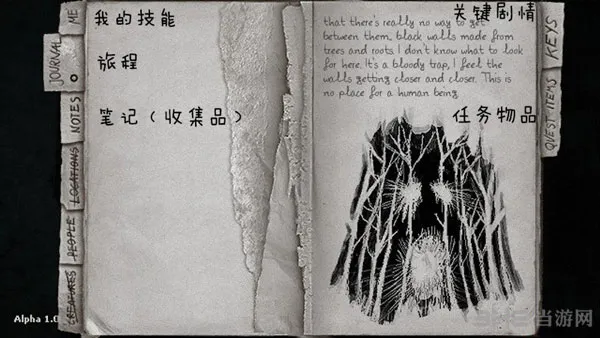 我的技能
旅程
笔记（收集品）
ME
JOURNAL
NOTES
LOCATIONS
PEOPLE
CREATURES
关键剧情
that there's really no way to get
between them, black walls made from
trees and roots. I don't know what to look
for here. It's a bloody trap, I feel the
walls getting closer and closer. This is
no place for a human being.
任务物品
KEYS
QUEST ITEMS
Alpha 1.0
当游网